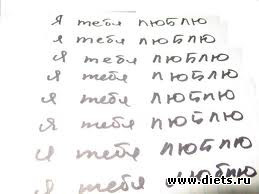 Я тебя люблю
я тебя люблю
я тебя люблю
я тебя люблю
я тебя люблю
я тебя люблю
я тебя люблю
я тебя люблю
www.diets.ru